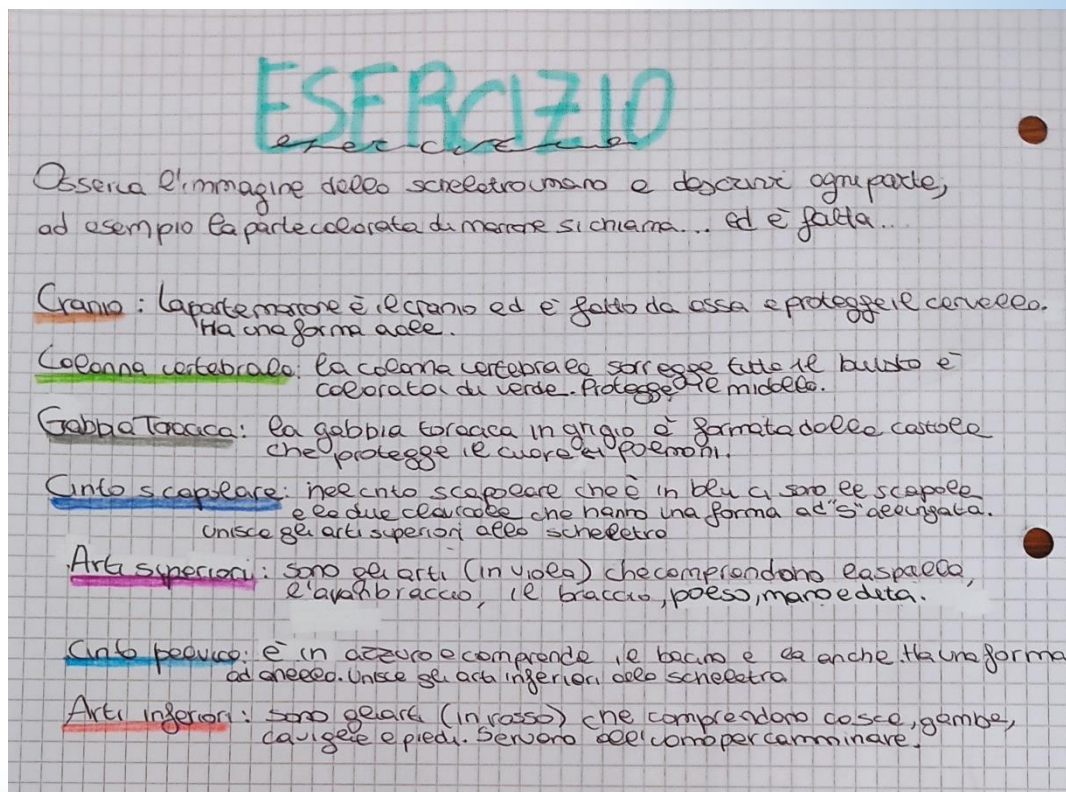 ESERCIZIO
esercizio
Osserva l'immagine dello scheletro umano e descrivi ogni parte,
ad esempio la parte colorata di marrone si chiama... ed è fatta...
Cranio: la parte marrone è il cranio ed è fatto da ossa e protegge il cervello.
Ha una forma
Colonna vertebrale: la colonna vertebrale sorregge tutto il busto è
colorata di verde. Protegge il midollo.
Gabbia Toracica: la gabbia toracica in grigio è formata dalle costole
che protegge il cuore e i polmoni.
Cinto scapolare: nel cinto scapolare che è in blu ci sono le scapole
e le due clavicole che hanno una forma ad "S" allungata.
Unisce gli arti superiori allo scheletro
Arti superiori: sono gli arti (in viola) che comprendono la spalla,
l'avambraccio, il braccio, polso, mano e dita.
Cinto pelvico: è in azzuro e comprende il bacino e anche. Ha una forma
ad anello. Unisce gli arti inferiori allo scheletro
Arti inferiori: sono gli arti (in rosso) che comprendono cosce, gambe,
cavigle e piedi. Servono all'uomo per camminare.